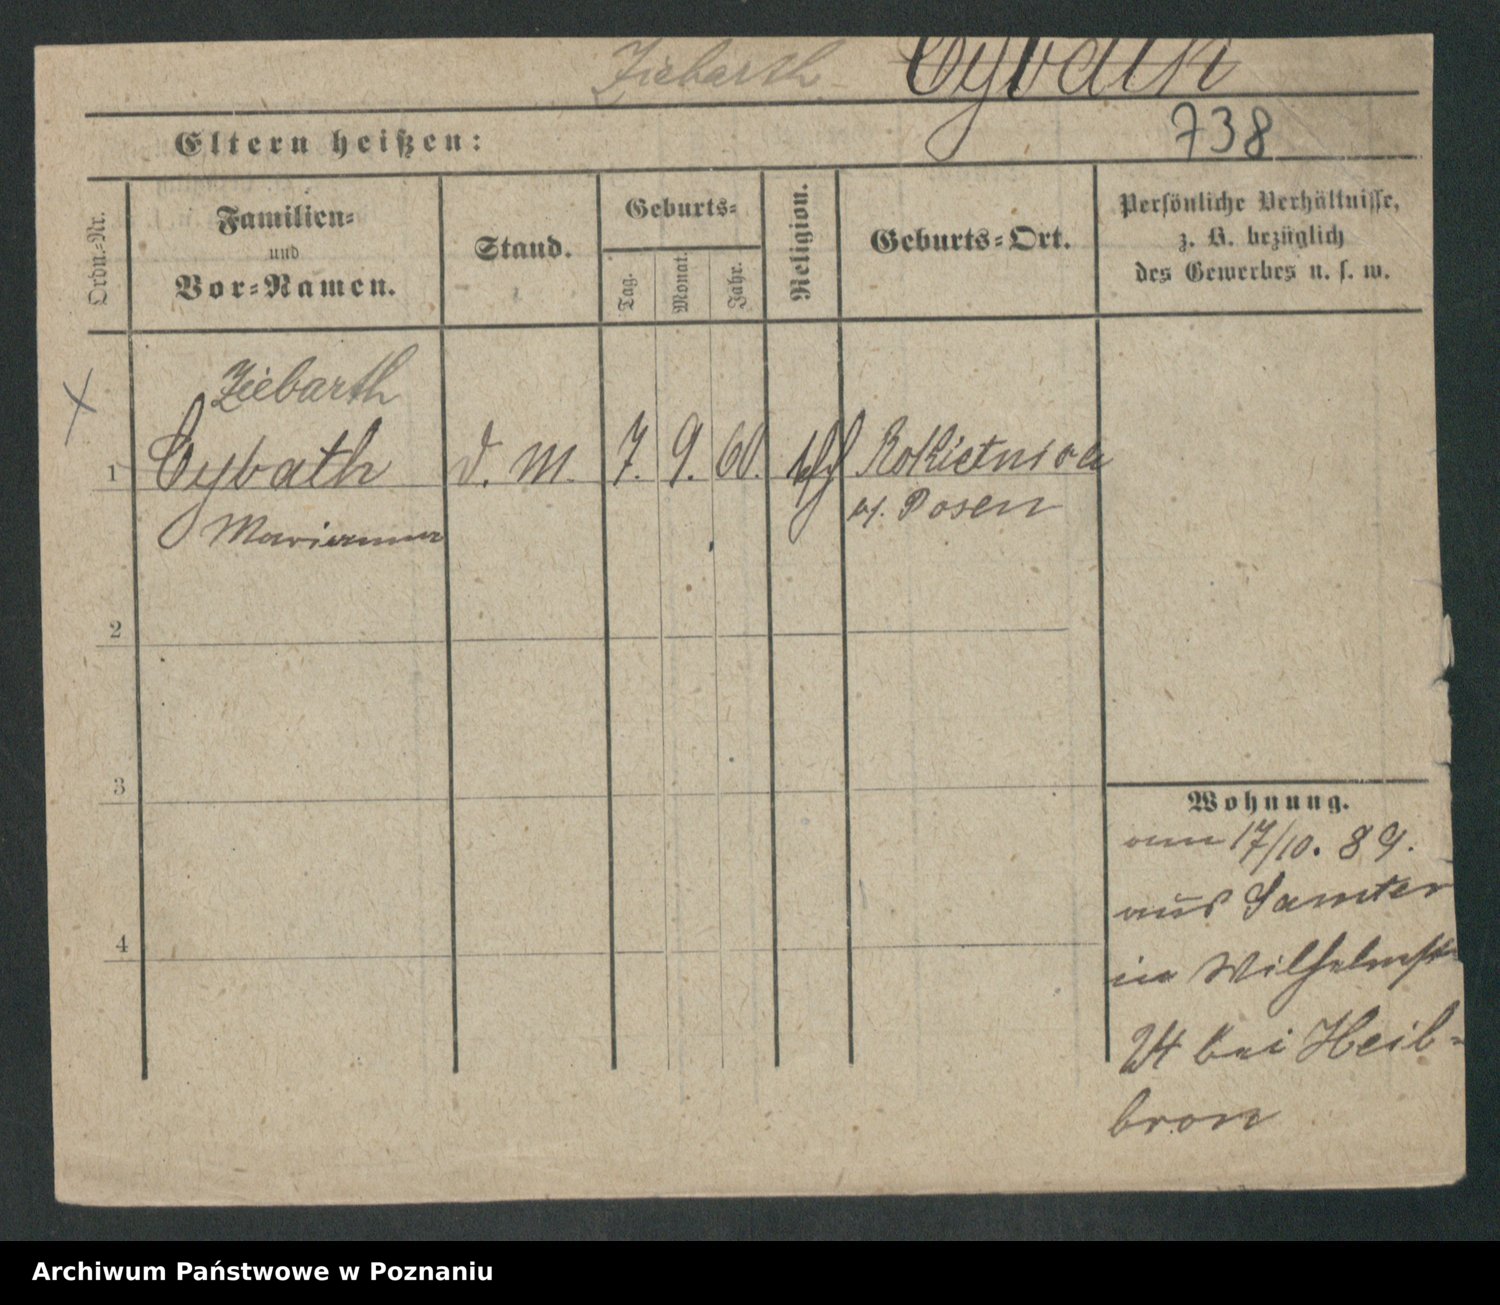 Ziebarth Cybath
738
Eltern heißen:
Ordn.-Nr.
Familien-
und
Vor-Namen.
Stand.
Geburts-
Tag.
Monat.
Jahr.
Religion.
Geburts-Ort.
Persönliche Verhältnisse,
z. B. bezüglich
des Gewerbes u. s. w.
Ziebarth
1 Cybath d. M. 7. 9. 60. Rokietnica
Marianna Posen
2
3
4
Wohnung.
am 17/10. 89.
aus Samter
in Wilhelmstr
24 bei Heil-
bron
Archiwum Państwowe w Poznaniu